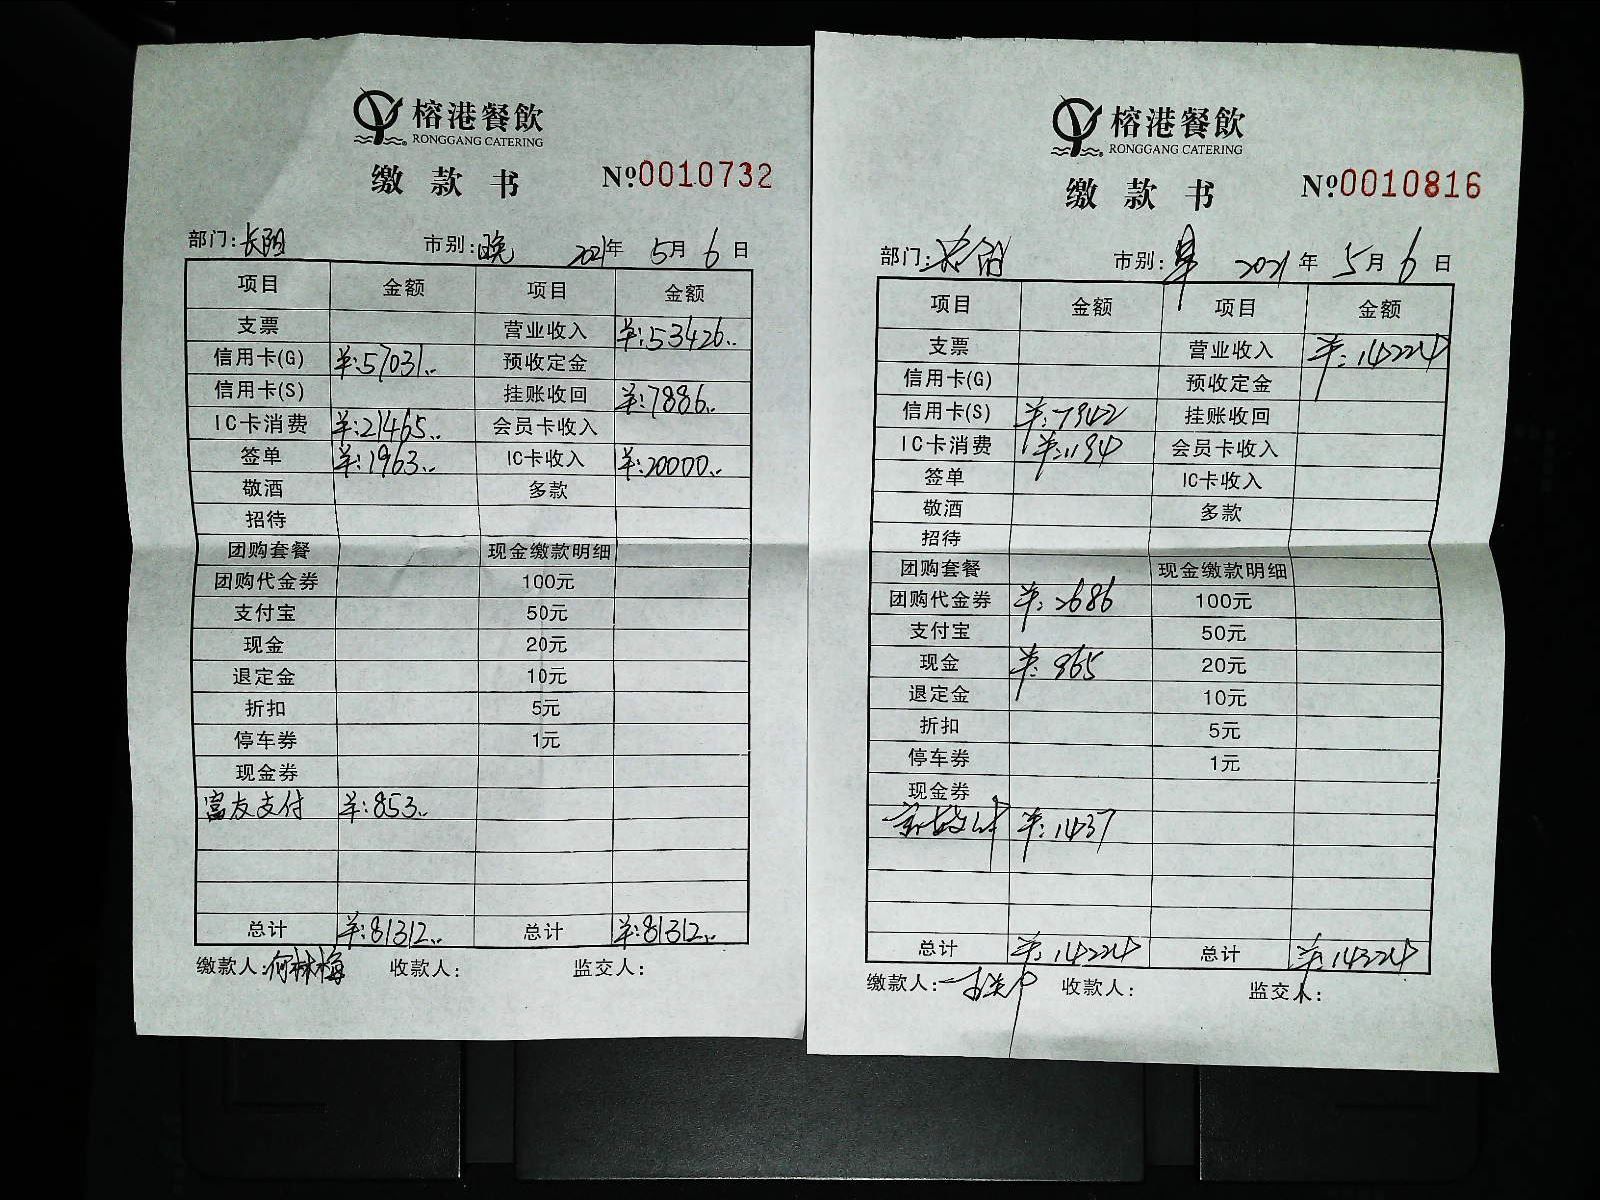 榕港餐飲
RONGGANG CATERING
缴款书 №0010732
部门:长阳 市别:晚 2021年5月6日
项目 金额 项目 金额
支票 营业收入 ¥:53426..
信用卡(G) ¥:57031.. 预收定金
信用卡(S) 挂账收回 ¥:7886..
IC卡消费 ¥:21465.. 会员卡收入
签单 ¥:1963.. IC卡收入 ¥:20000..
敬酒 多款
招待
团购套餐 现金缴款明细
团购代金券 100元
支付宝 50元
现金 20元
退定金 10元
折扣 5元
停车券 1元
现金券
富友支付 ¥:853..
总计 ¥:81312.. 总计 ¥:81312..
缴款人:何林梅 收款人: 监交人:
榕港餐飲
RONGGANG CATERING
缴款书 №0010816
部门: 市别:早 2021年5月6日
项目 金额 项目 金额
支票 营业收入 ¥:14224
信用卡(G) 预收定金
信用卡(S) ¥:7942 挂账收回
IC卡消费 ¥:1194 会员卡收入
签单 IC卡收入
敬酒 多款
招待
团购套餐 现金缴款明细
团购代金券 ¥:2686 100元
支付宝 50元
现金 ¥:965 20元
退定金 10元
折扣 5元
停车券 1元
现金券
¥:1437
总计 ¥:14224 总计 ¥:14224
缴款人: 收款人: 监交人: